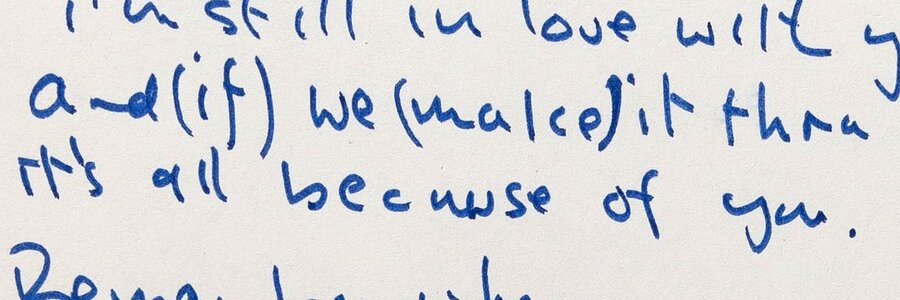 I'm still in love with y
and (if) we (make) it thru
it's all because of you.
Remember when